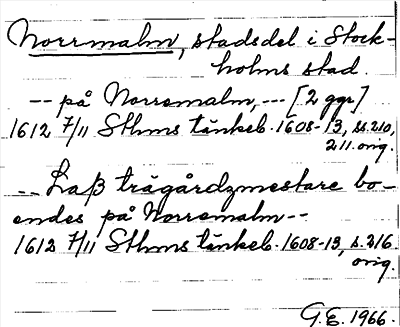 Norrmalm, stadsdel i Stock-
holms stad.
-- på Norremalm, --- [2 ggr]
1612 7/11 Sthms tänkeb. 1608-13, ss. 210,
211. orig.
-- Laß trägårdzmestare bo-
endes på Norremalm --
1612 7/11 Sthms tänkeb. 1608-13, s. 216.
orig.
G.E. 1966.